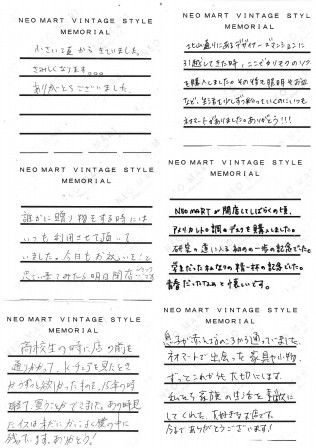 NEO MART VINTAGE STYLE
MEMORIAL
小さい頃からきていました。
さみしくなります。。。
ありがとうございました。
NEO MART VINTAGE STYLE
MEMORIAL
北山通りにあるデザイナーズマンションに
引越してきた時、ここでかりモクのソファ
を購入しました。その後で照明やお皿
など、生活を少しずつ作っていくのにいつも
ネオマートがありました。ありがとう!!!
NEO MART VINTAGE STYLE
MEMORIAL
誰かに贈り物をする時には
いつも利用させて頂いて
いました。今日もお祝いをと
思い来てみたら明日閉店
NEO MART VINTAGE STYLE
MEMORIAL
NEO MARTが開店してしばらくの頃、
アメリカントリ調のデスクを購入しました。
研究の道に入る初めの一歩の記念でした。
学生だったわたなりの精一杯の記念でした。
青春だったなぁと懐しいです。
NEO MART VINTAGE STYLE
MEMORIAL
高校生の時に店の前を
通りかかって、Kチェアを見たとき
からずっと欲しかったものを、15年の時
を経て、買うことができました。あの時見
たイスは未だに心に
残っています。ありがとう!
NEO MART VINTAGE STYLE
MEMORIAL
息子が赤ん坊のころから通っていました。
ネオマートで出会った家具や小物、
ずっとこれからも大切にします。
私たち家族の生活を素敵に
してくれた、大好きな店です。
今までありがとうございました。